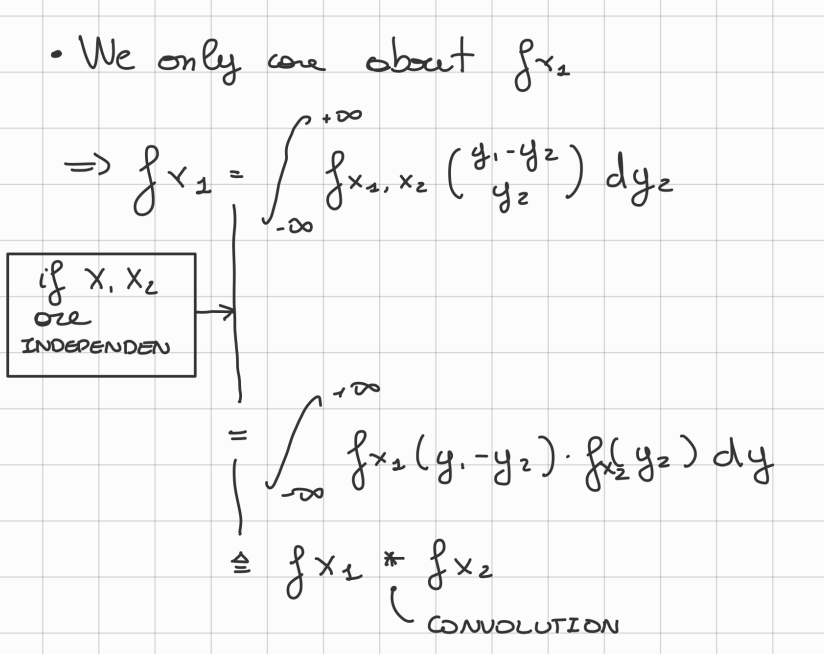 • We only care about f_{Y_1}
⇒ f_{Y_1} = ∫_{-∞}^{+∞} f_{X_1, X_2} (y_1-y_2 / y_2) dy_2
if X_1 X_2
are
INDEPENDEN
= ∫_{-∞}^{+∞} f_{X_1}(y_1-y_2) · f_{X_2}(y_2) dy
≜ f_{X_1} * f_{X_2}
CONVOLUTION